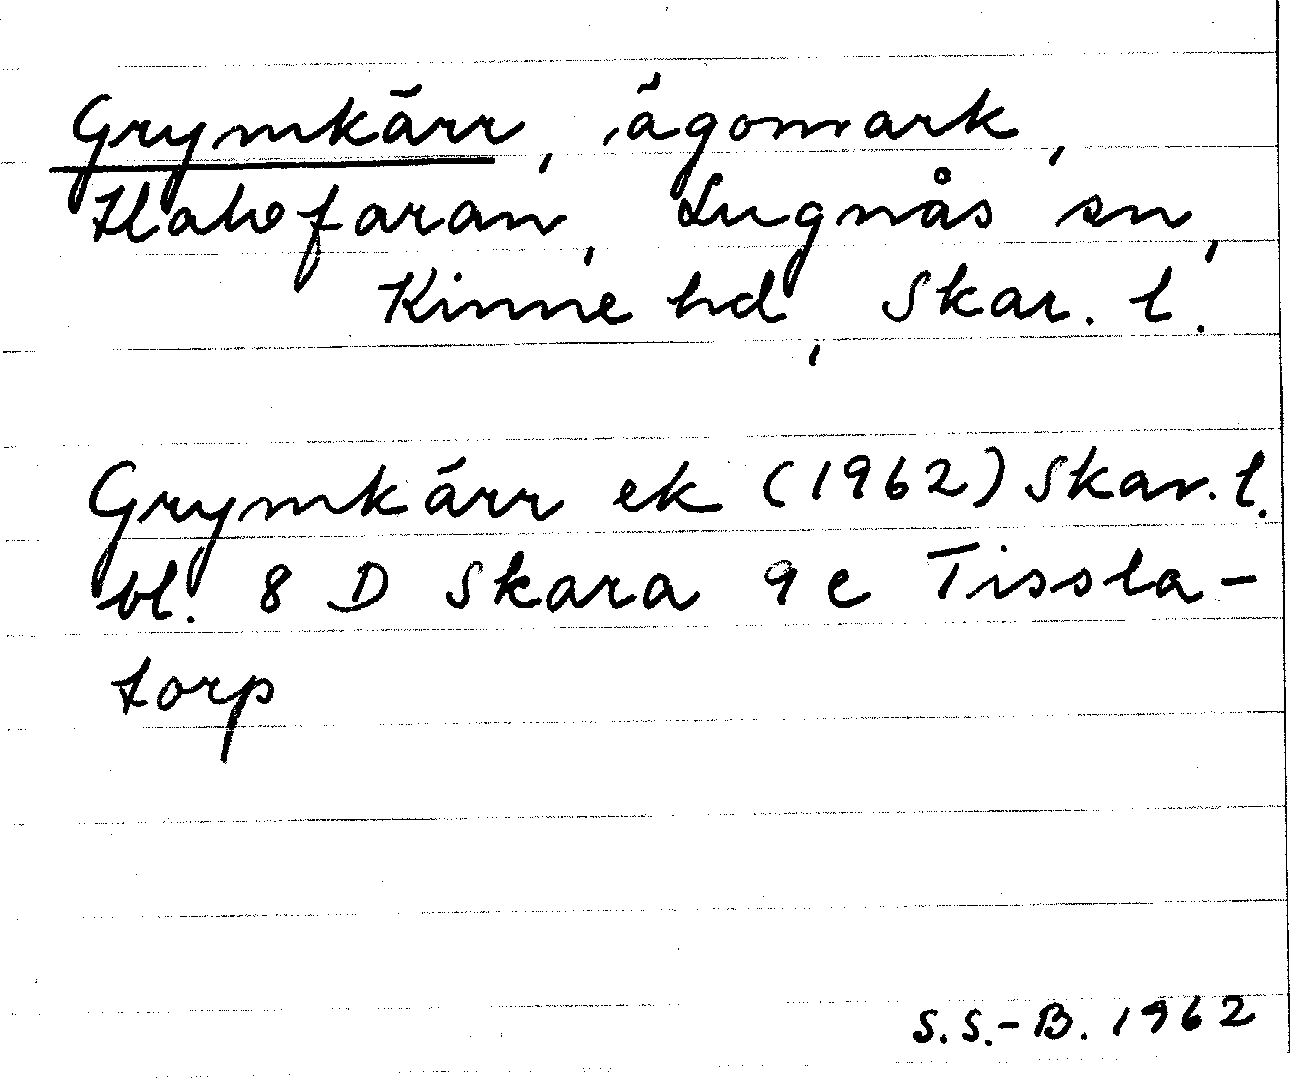 Grymkärr, ägomark,
Halvfaran, Lugnås sn,
Kinne hd, Skar. l.
Grymkärr ek (1962) Skar. l.
bl. 8 D Skara 9 e Tissla-
torp
S.S.-B. 1962